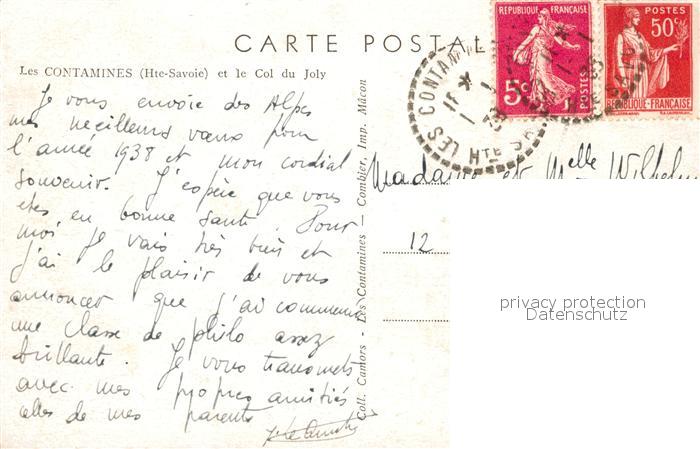 CARTE POSTALE
Les CONTAMINES (Hte-Savoie) et le Col du Joly
Je vous envoie des Alpes
mes meilleurs vœux pour
l'année 1938 et mon cordial
souvenir. J'espère que vous
etes en bonne santé. Pour
moi, je vais très bien et
j'ai le plaisir de vous
annoncer que j'ai commencé
une classe de philo assez
brillante. Je vous transmets
avec mes propres amitiés
celles de mes parents
Coll. Cantors - Les Contamines — Combier, Imp. Mâcon
REPUBLIQUE FRANÇAISE
5c
POSTES
POSTES
50c
REPUBLIQUE-FRANÇAISE
LES CONTAMINES
Hte SAVOIE
Madame et Melle Wilhelm
12
privacy protection
Datenschutz